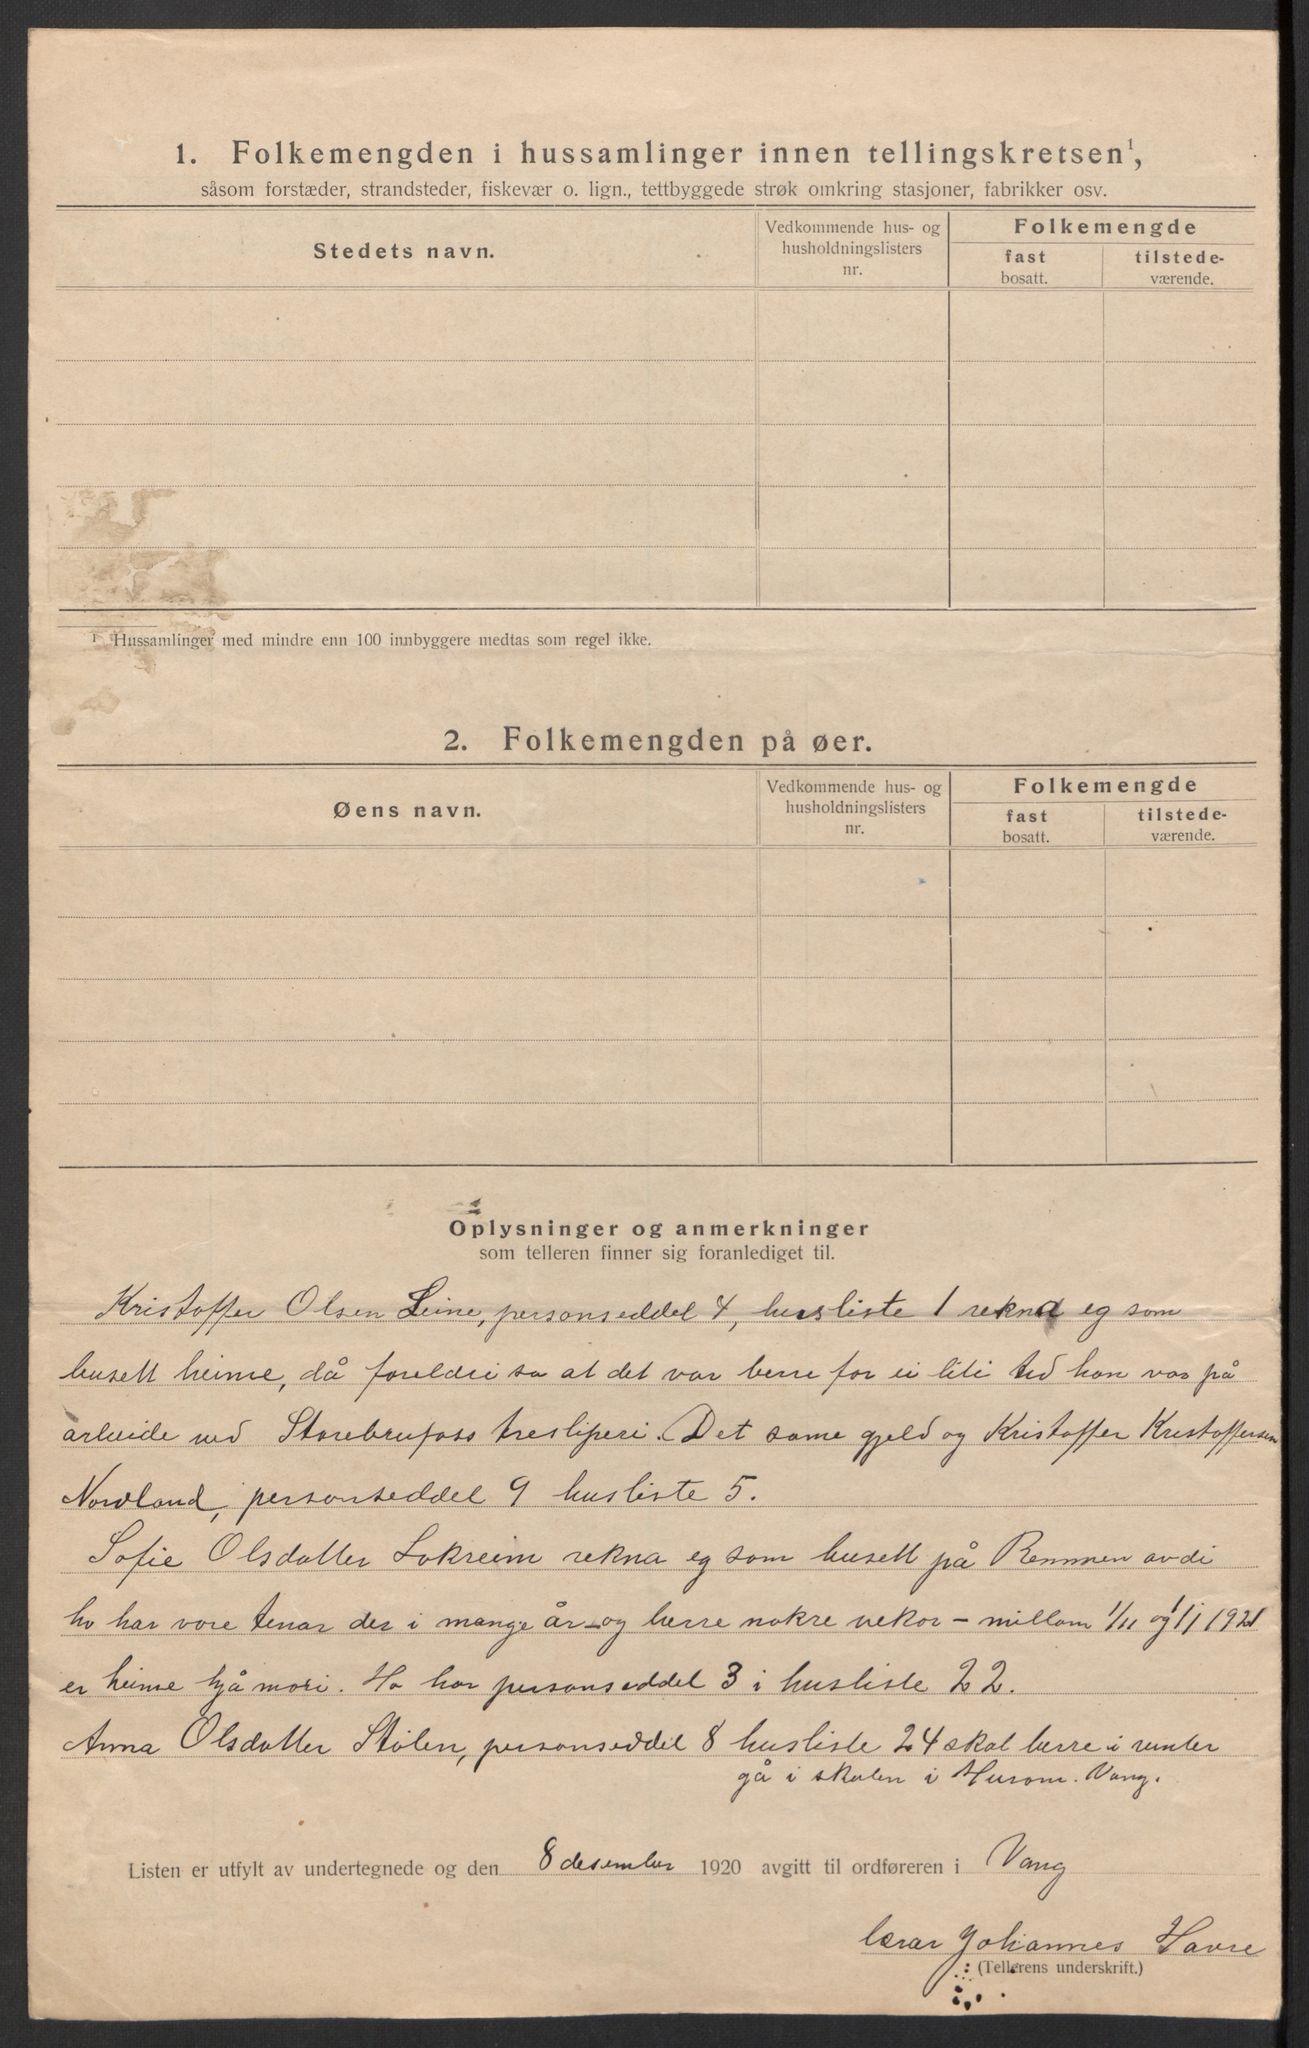 1. Folkemengden i hussamlinger innen tellingskretsen¹,
såsom forstæder, strandsteder, fiskevær o. lign., tettbyggede strøk omkring stasjoner, fabrikker osv.
Stedets navn.
Vedkommende hus- og
husholdningslisters
nr.
Folkemengde
fast
bosatt.
tilstede-
værende.
¹ Hussamlinger med mindre enn 100 innbyggere medtas som regel ikke.
2. Folkemengden på øer.
Øens navn.
Vedkommende hus- og
husholdningslisters
nr.
Folkemengde
fast
bosatt.
tilstede-
værende.
Oplysninger og anmerkninger
som telleren finner sig foranlediget til.
Kristoffer Olsen Leine, personseddel 4, husliste 1 rekna eg som
busett heime, då foreldri sa at det var berre for ei liti tid han var på
arbeide ved Storebrufoss tresliperi. Det same gjeld og Kristoffer Kristoffersen
Nordland, personseddel 9 husliste 5.
Sofie Olsdatter Lokreim rekna eg som busett på Remmen avdi
ho har vore tenar der i mange år og berre nokre vekor - millom 1/11 og 1/1 1921
er heime hjå mori. Ho har personseddel 3 i husliste 22.
Anna Olsdatter Stølen, personseddel 8 husliste 24 skal berre i vinter
gå i skulen i Hurom. Vang.
Listen er utfylt av undertegnede og den 8 desember 1920 avgitt til ordføreren i Vang
lærar Johannes Havre
(Tellerens underskrift.)